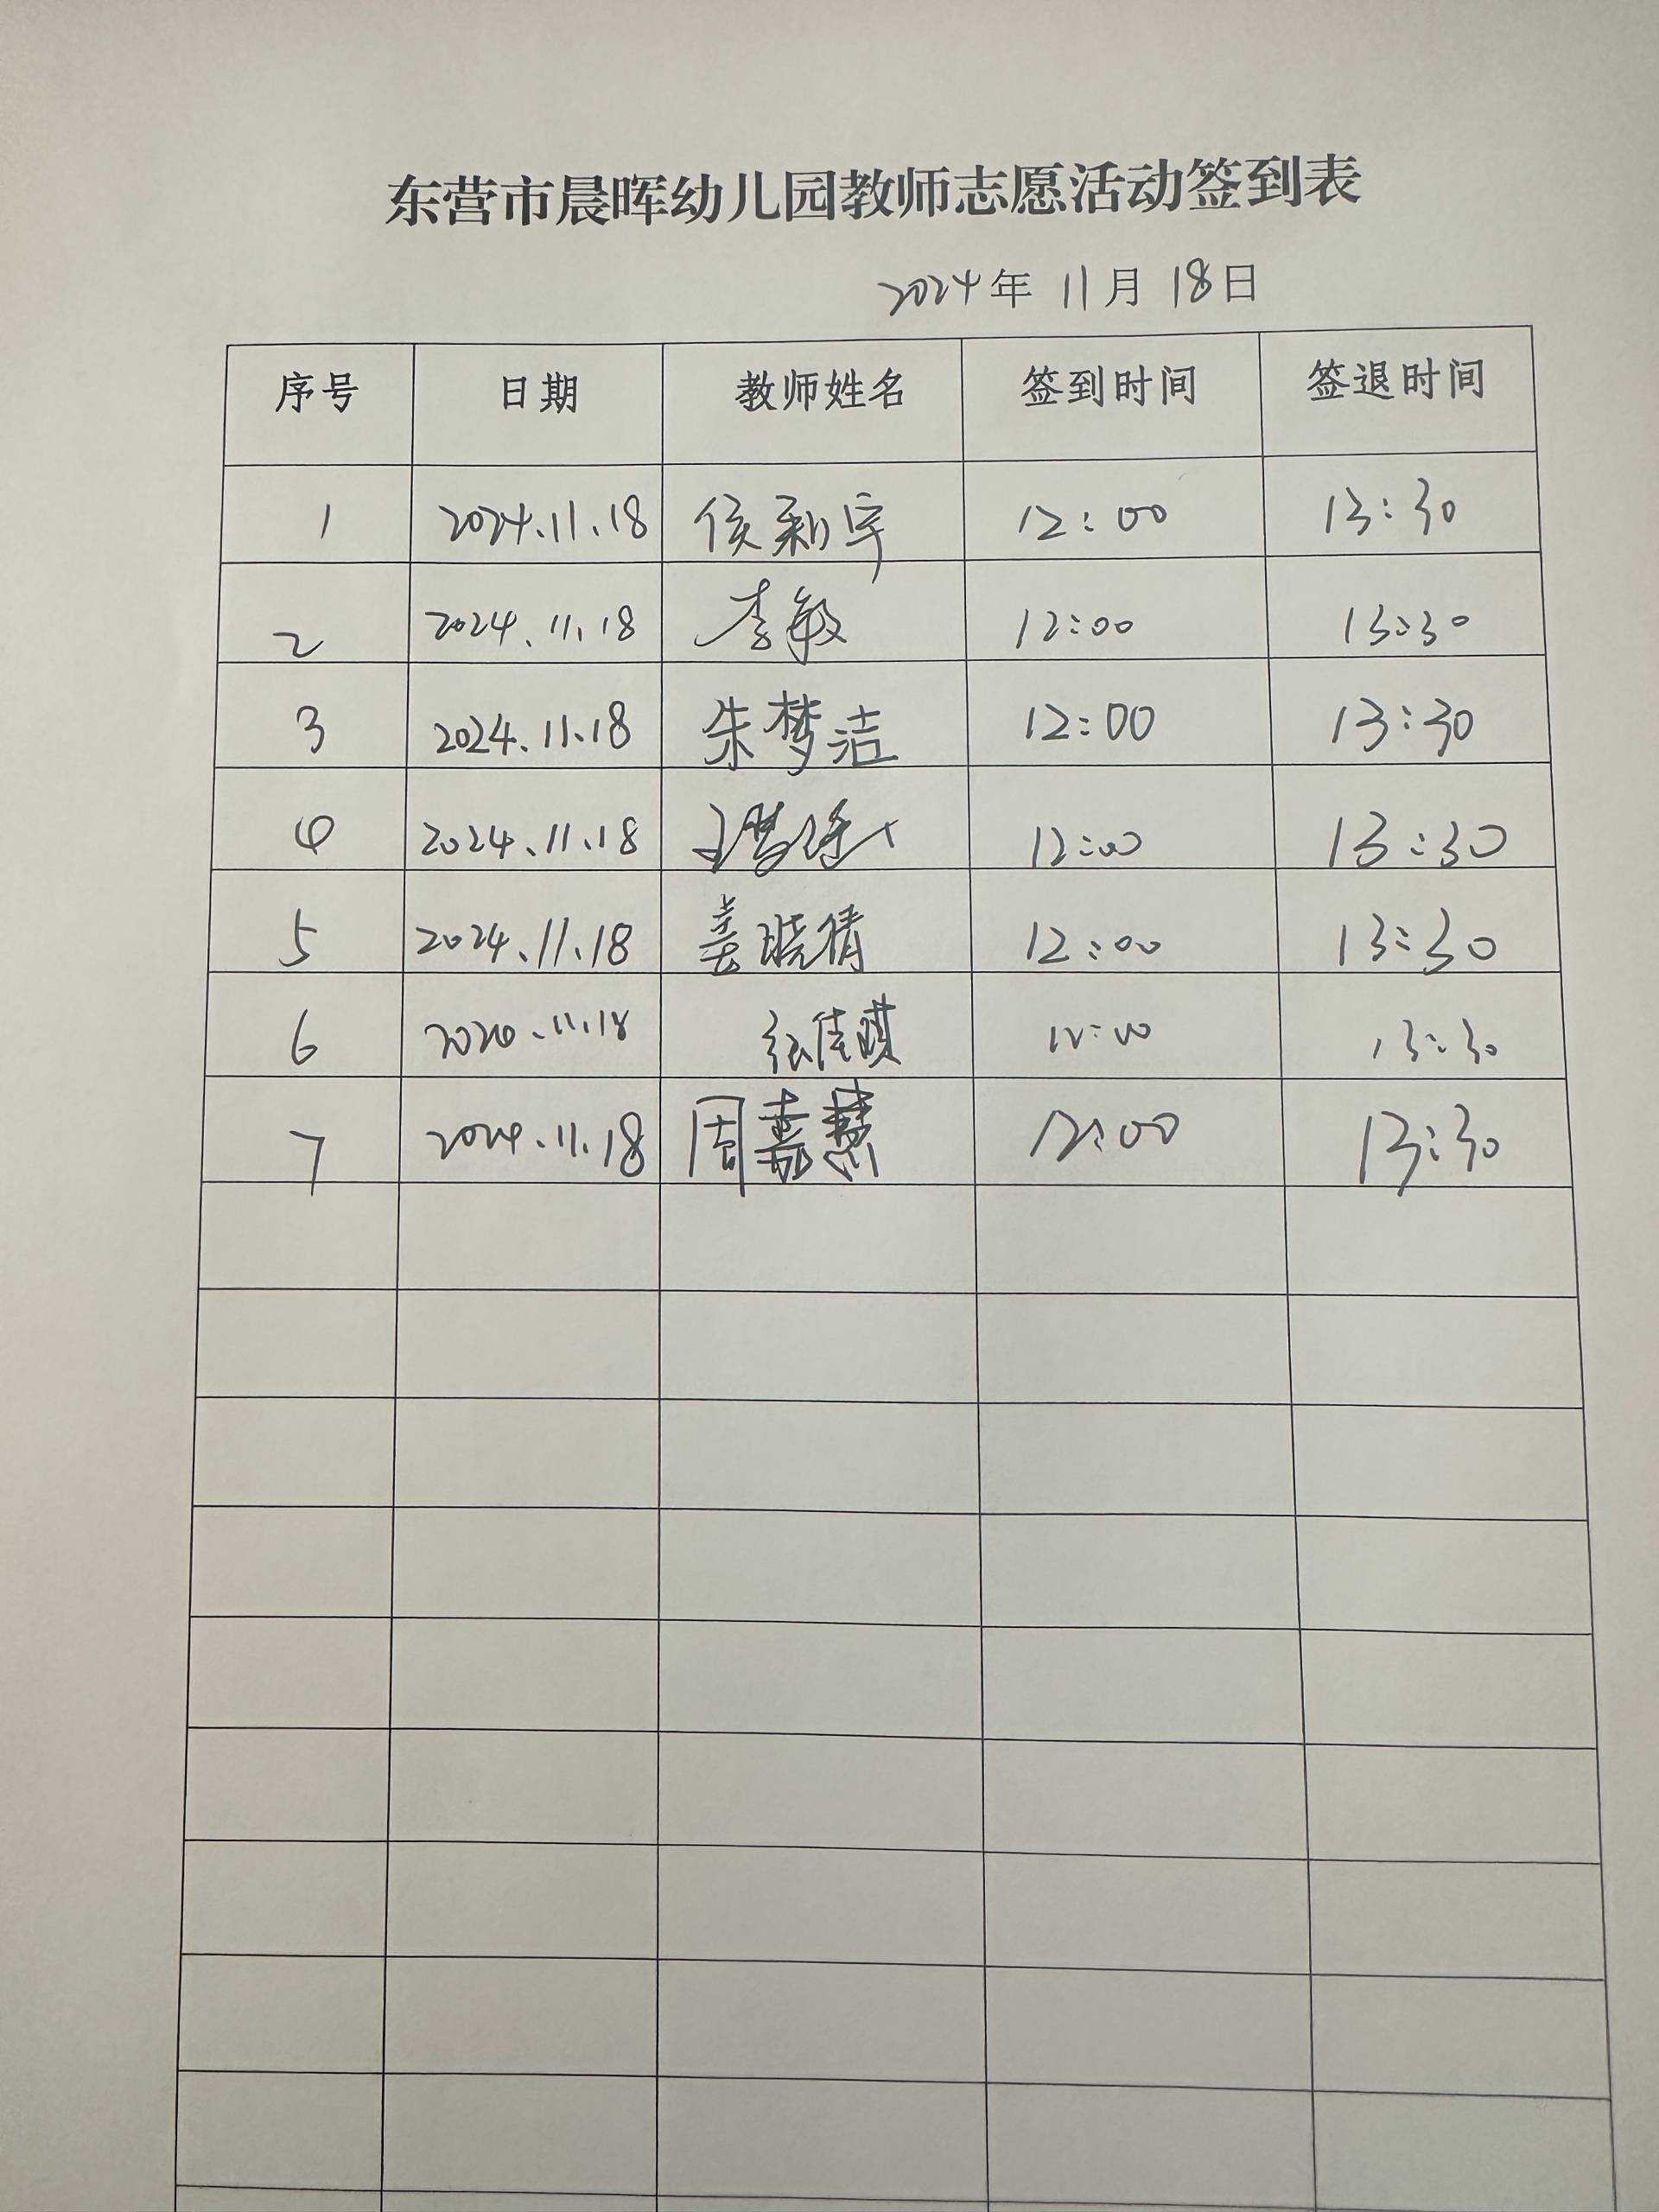 东营市晨晖幼儿园教师志愿活动签到表
2024年 11月 18日
序号 日期 教师姓名 签到时间 签退时间
1 2024.11.18 侯新宇 12:00 13:30
2 2024.11.18 李敏 12:00 13:30
3 2024.11.18 朱梦洁 12:00 13:30
4 2024.11.18 12:00 13:30
5 2024.11.18 姜晓倩 12:00 13:30
6 2024.11.18 张佳琪 12:00 13:30
7 2024.11.18 周嘉慧 12:00 13:30